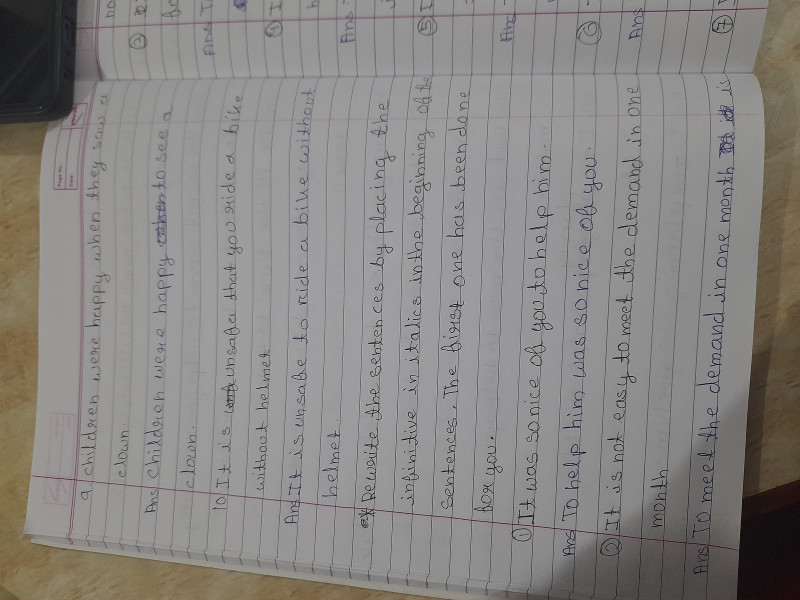 9 Children were happy when they saw a
clown.
Ans Children were happy to see a
clown.
10 It is unsafe that you ride a bike
without helmet
Ans It is unsafe to ride a bike without
helmet.
Rewrite the sentences by placing the
infinitive in italics in the beginning of the
sentences. The first one has been done
for you.
① It was so nice of you to help him.
Ans To help him was so nice of you.
② It is not easy to meet the demand in one
month
Ans To meet the demand in one month is
③
Ans
④ I
Ans -
⑤
Ans -
⑥ -
Ans
⑦